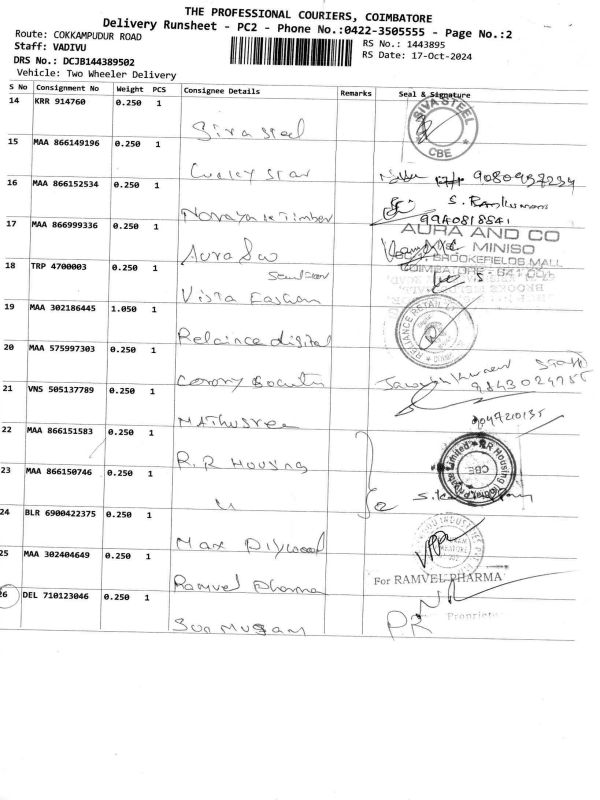 THE PROFESSIONAL COURIERS, COIMBATORE
Delivery Runsheet - PC2 - Phone No.:0422-3505555 - Page No.:2
Route: COKKAMPUDUR ROAD
RS No.: 1443895
Staff: VADIVU
RS Date: 17-Oct-2024
DRS No.: DCJB144389502
Vehicle: Two Wheeler Delivery
S No Consignment No Weight PCS Consignee Details Remarks Seal & Signature
14 KRR 914760 0.250 1 Siva steel SIVA STEEL CBE
15 MAA 866149196 0.250 1 9080957234
16 MAA 866152534 0.250 1 Narayana Timber
17 MAA 866999336 0.250 1 Aura AURA AND CO
MINISO
BROOKEFIELDS MALL
COIMBATORE - 641 001
18 TRP 4700003 0.250 1 Vista Fashion
19 MAA 302186445 1.050 1 Relaince digital RELIANCE RETAIL
20 MAA 575997303 0.250 1
21 VNS 505137789 0.250 1 9047210135
22 MAA 866151583 0.250 1 R.R Housing RR Housing Private Limited CBE
23 MAA 866150746 0.250 1 "
24 BLR 6900422375 0.250 1 Max Plywood
25 MAA 302404649 0.250 1 Ramvel Pharma For RAMVEL PHARMA
Proprietor
26 DEL 710123046 0.250 1 P.R